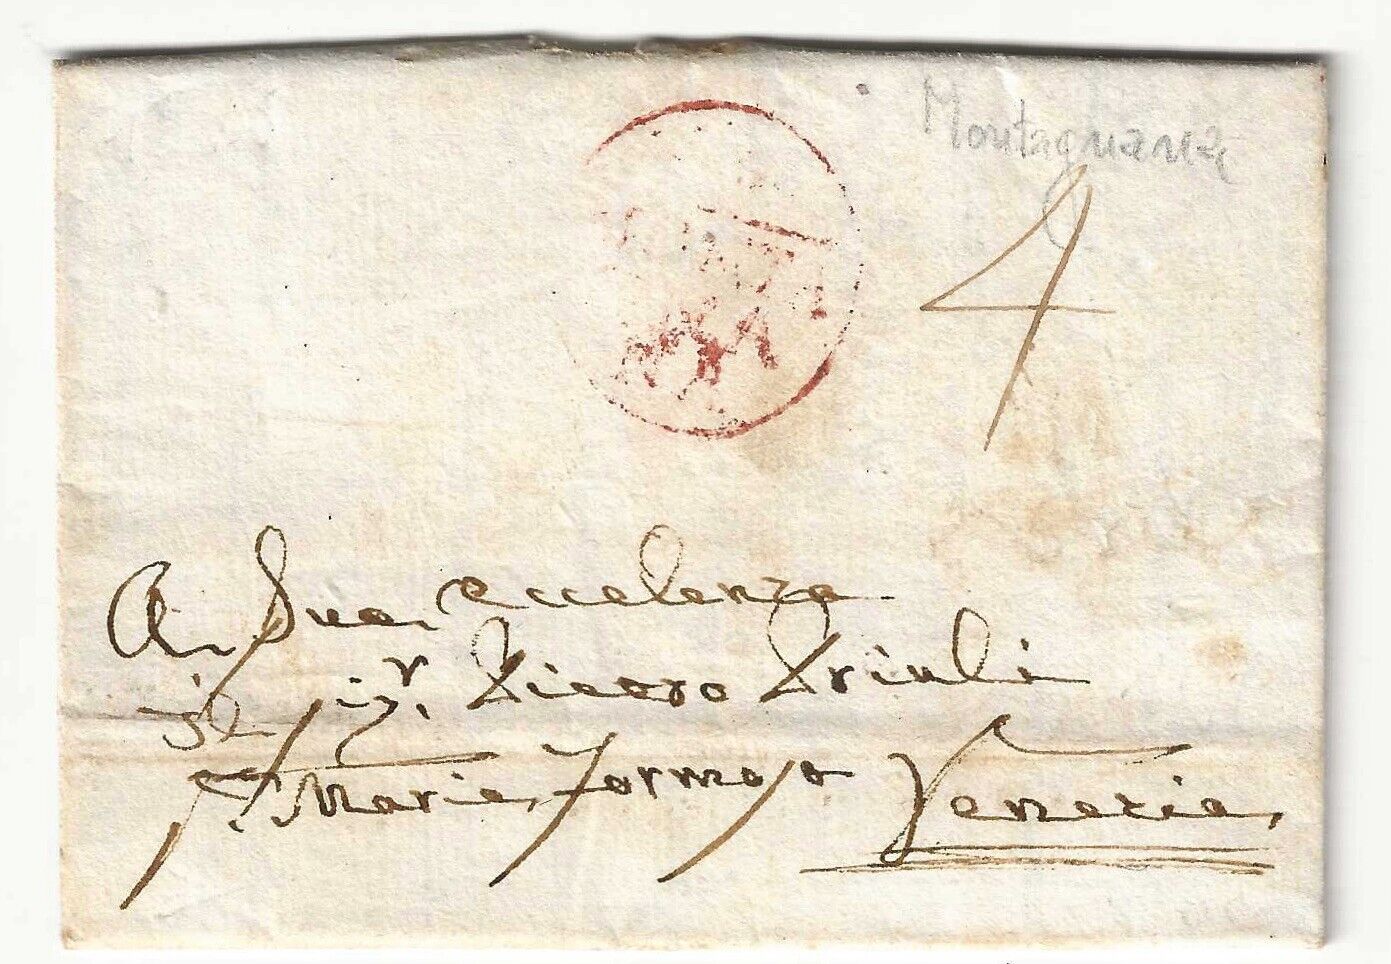 Montagnana
4
A Sua eccelenza
il Sigr. Pietro Priuli
S. Maria Formosa Venezia